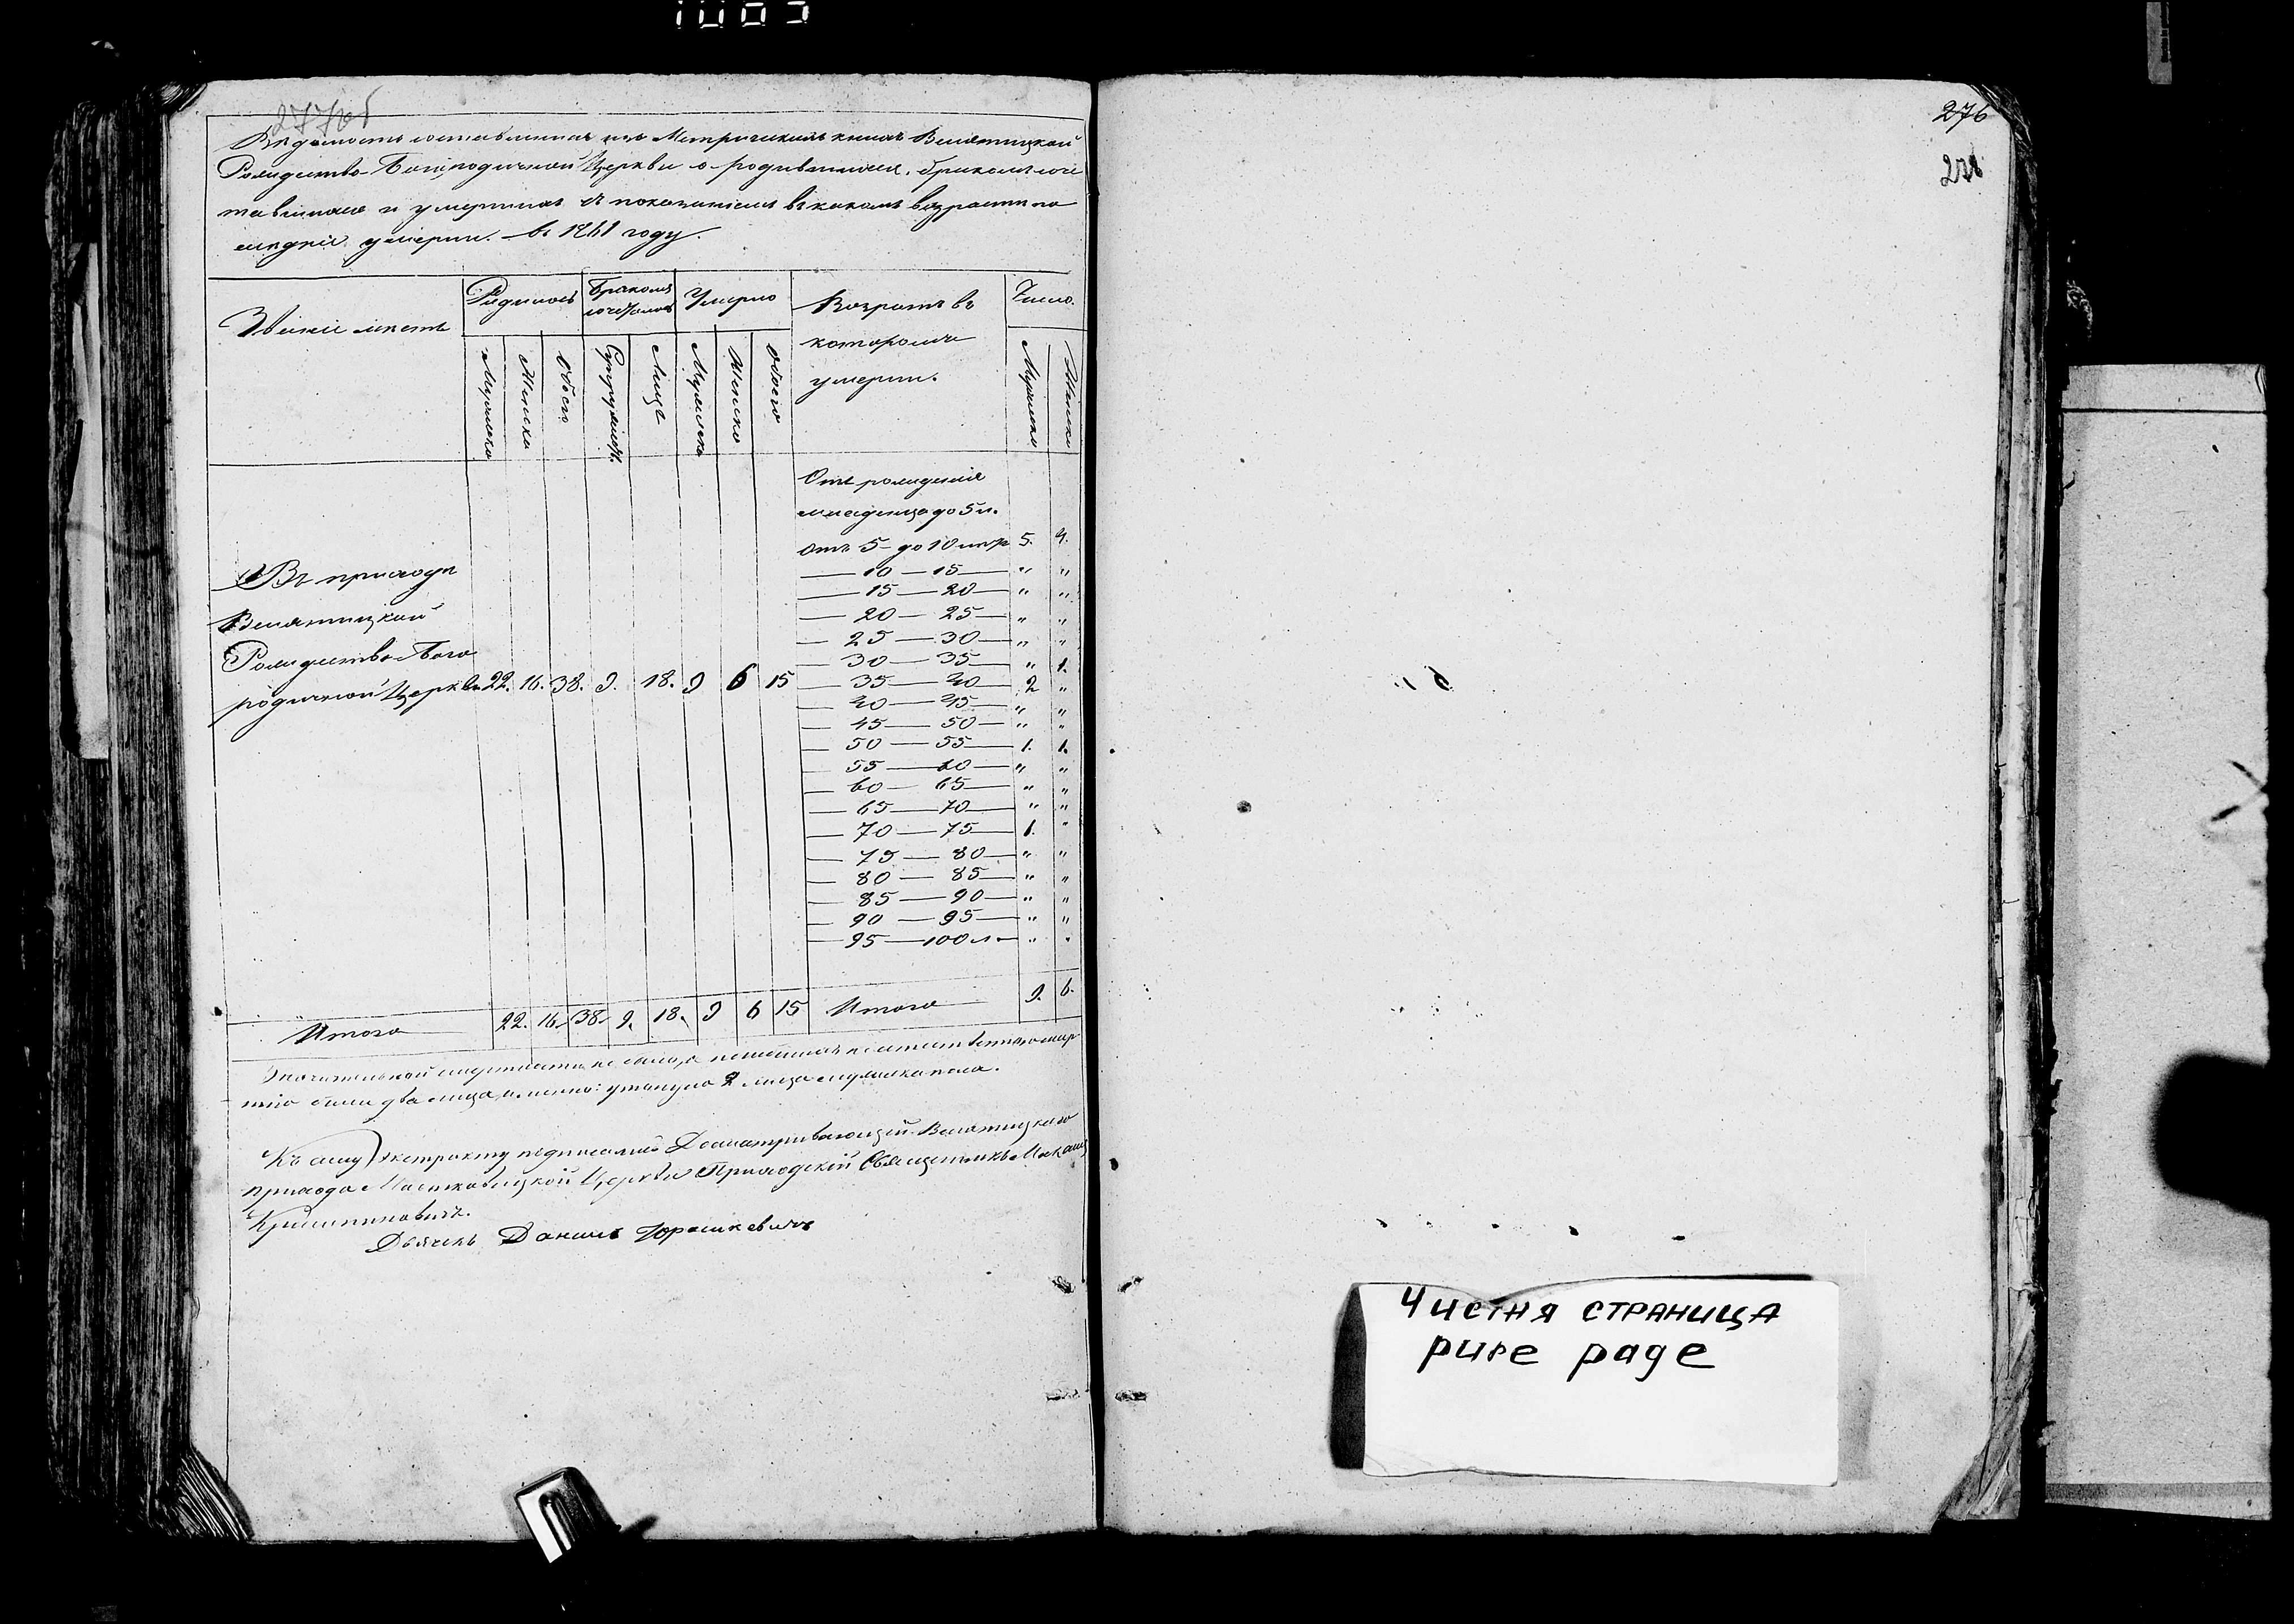 277об
Ведомость составленная изъ Метрическихъ книгъ Велятицкой
Рождество-Богородичной Церкви о родившихся, бракомъ соче
тавшихся и умершихъ съ показаніемъ въ какомъ возрасте по
следніе умерли. въ 1861 году.
Званіе местъ
Родилось
Бракомъ сочеталось
Умерло
Возрастъ въ которомъ умерли.
Число.
Мужеска
Женска
Обоего
Супружествъ.
Лице
Мужеска
Женска
Обоего
Мужеска
Женска
Отъ рожденія
младенца до 5 л.
отъ 5 до 10 летъ 5. 4.
10 — 15 " "
15 — 20 " "
20 — 25 " "
25 — 30 " "
30 — 35 " 1.
35 — 40 2 "
40 — 45 " "
45 — 50 " "
50 — 55 1. 1.
55 — 60 " "
60 — 65 " "
65 — 70 " "
70 — 75 1. "
75 — 80 " "
80 — 85 " "
85 — 90 " "
90 — 95 " "
95 — 100 л. " "
Въ приходе
Велятицкой
Рождество-Бого
родичной Церкви 22. 16. 38. 9. 18. 9 6 15
Итого 22. 16. 38. 9. 18. 9 6 15 Итого 9. 6.
Значительной смертности не было, а неестественною смер
тію были два лица, именно: утонуло 2 лица мужеска пола.
Къ сему экстракту подписались Досматривающій Велятицкаго
прихода Церкви Приходскій Священникъ
Дьячекъ Даніилъ Юрашкевичъ
276
276
Чистая страница
pure page